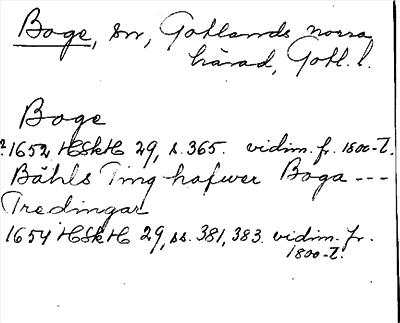 Boge, sn, Gotlands norra
härad, Gotl. l.
Boge
?1652 HSkH 29, s. 365. vidim. fr. 1800-t.
Bähls Ting hafwer Boga ---
Tredingar
1654 HSkH 29, ss. 381, 383. vidim. fr.
1800-t.